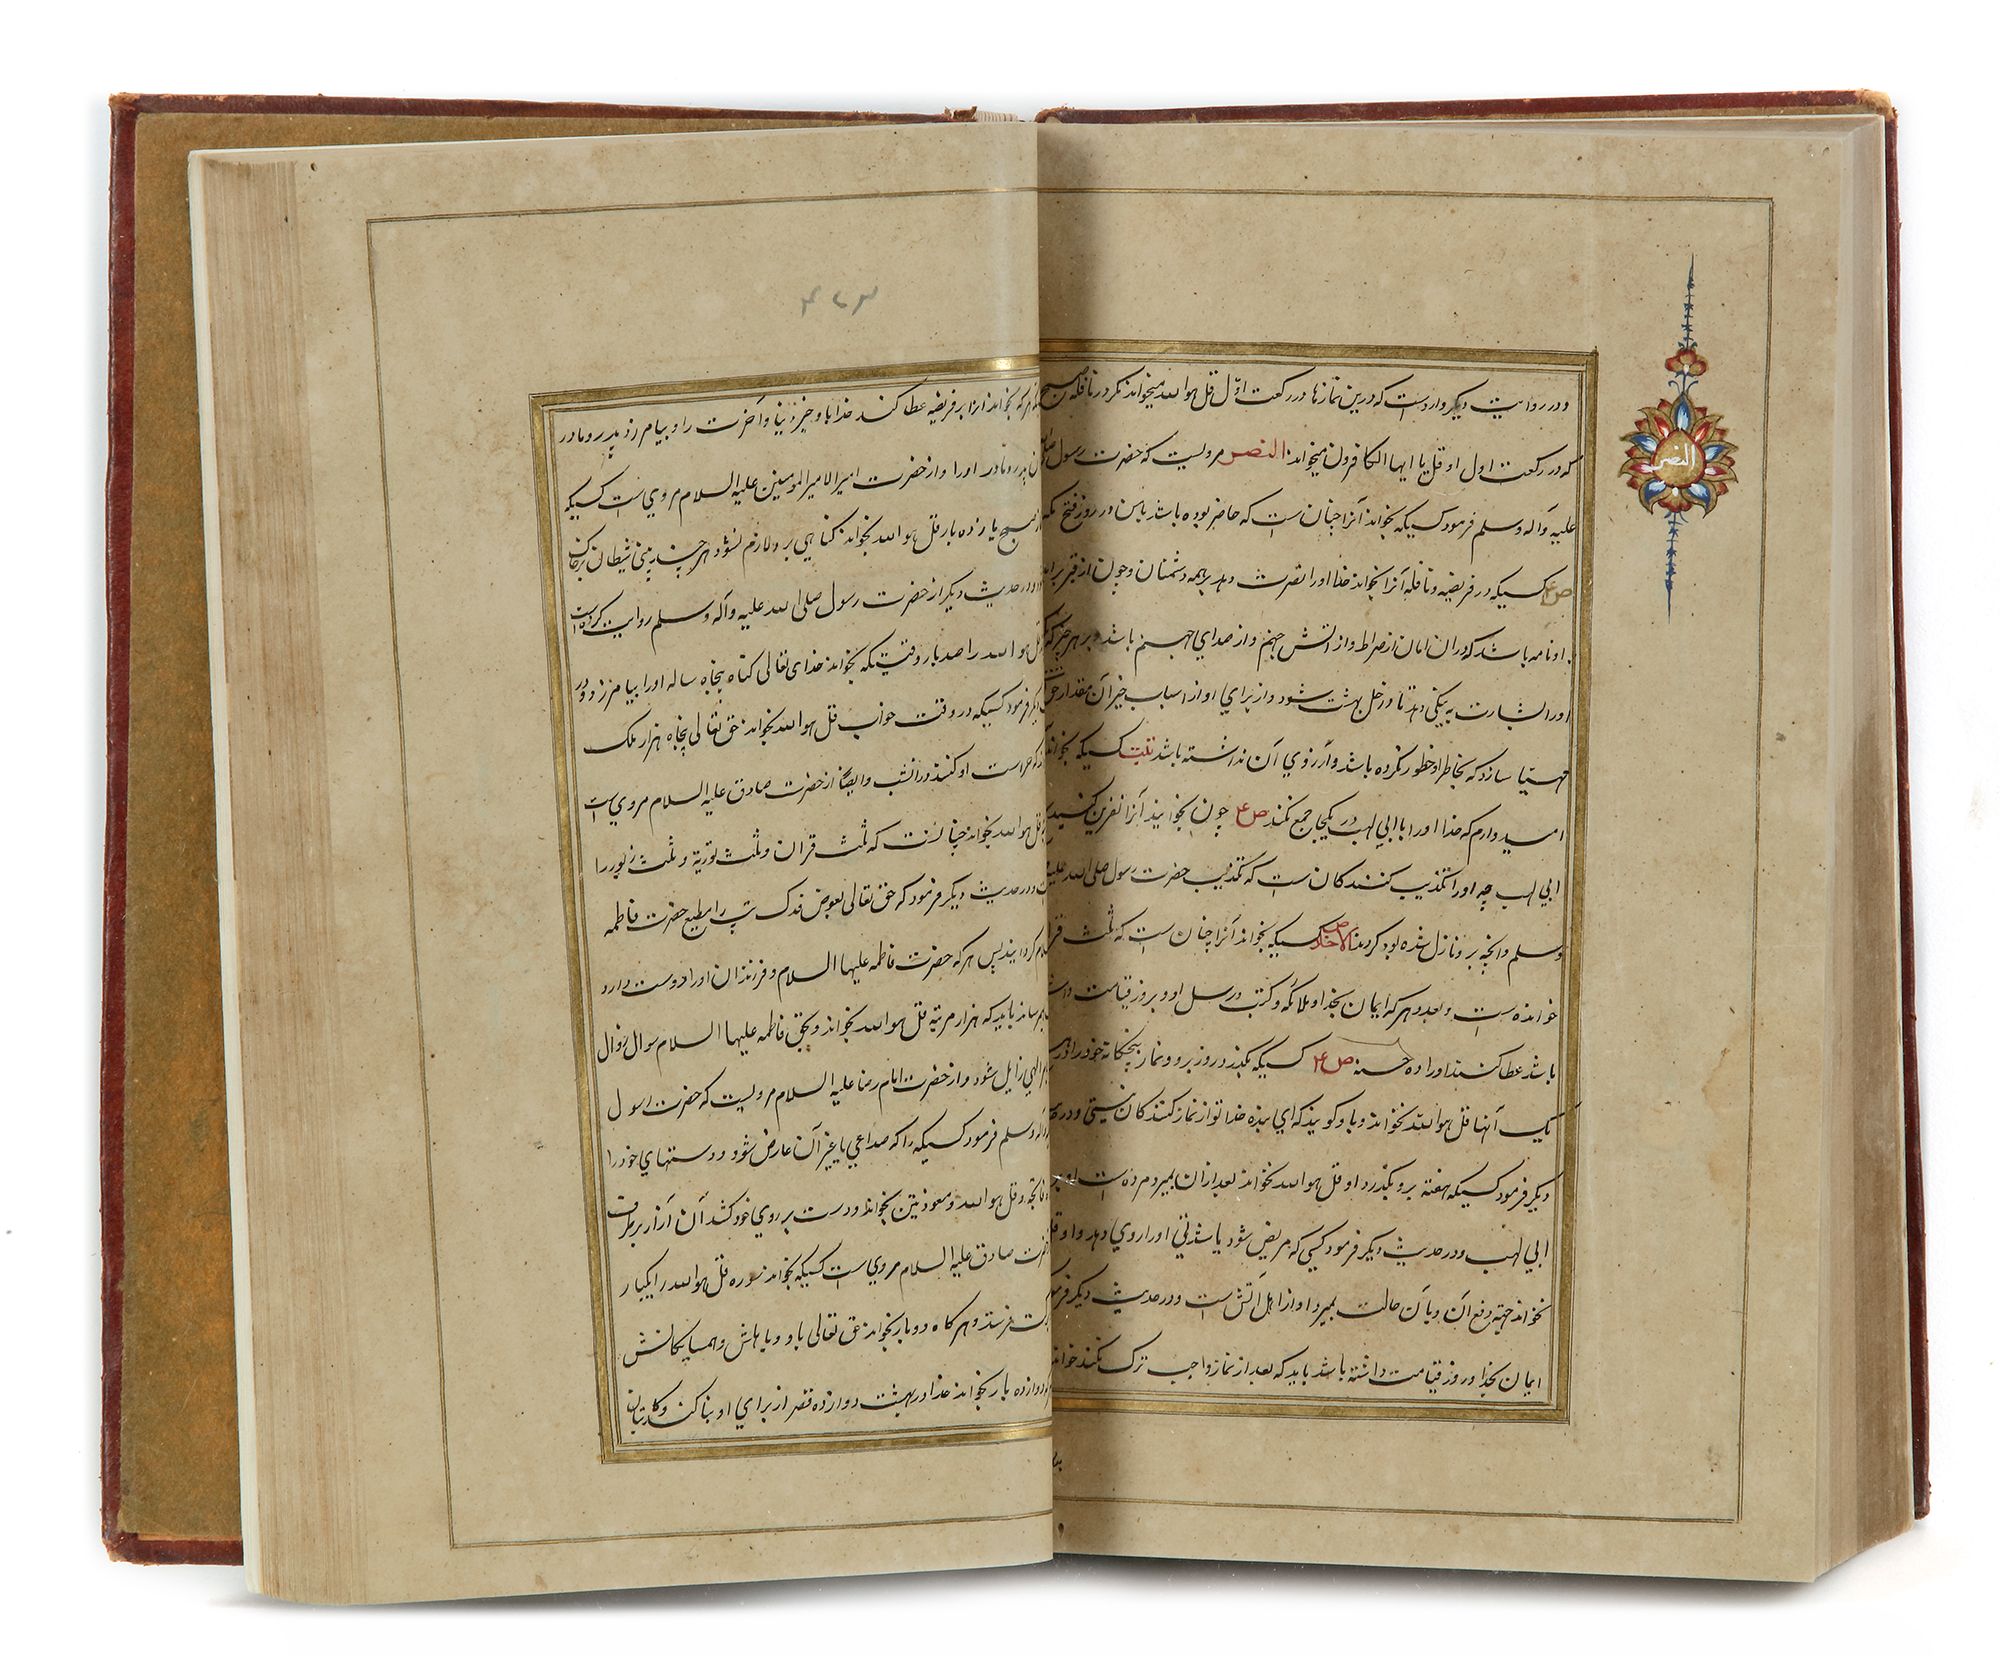 النصر
و در روایت دیگر وارد است که درین نمازها در رکعت اوّل قل هو الله میخواند مگر در نافله صبح
که در رکعت اول او قل یا ایها الکافرون میخواند النصر مرویست که حضرت رسول صلی الله
علیه وآله وسلم فرمود کسیکه بخواند آنرا چنان است که حاضر بوده باشد با من در روز فتح مکه
ص ع کسیکه در فریضه و نافله آنرا بخواند خدا او را نصرت دهد بر همه دشمنان و چون از قبر بر
او نامه باشد که در ان امان از صراط و از اتش جهنم و از صدای جهنم باشد و بر هر چیز که
او را بشارت به نیکی دهد تا داخل بهشت شود و از برای او از اسباب خیر آن مقدار حق
مهیّا سازد که بخاطر او خطور نکرده باشد و آرزوی آن نداشته باشد تبّت کسیکه بخواند
امیدوارم که خدا او را با ابی لهب در یکجا جمع نکند ص ع چون بخوانید آنرا نفرین کنید
ابی لهب چه او از تکذیب کنندگان است که تکذیب حضرت رسول صلی الله علیه
وسلم و انچه بر و نازل شده بود کردند الاخلاص کسیکه بخواند آنرا چنان است که ثلث قر
خوانده است و بعدد هر که ایمان بخدا و ملائکه و کتب و رسل او و بروز قیامت داشته
باشد عطا کنند او را ده حسنه ص ع کسیکه بگذرد روز برو و نماز پنجکانه خود را در
یک آنها قل هو الله نخواند و باو کویند که ای بنده خدا تو از نماز کنندگان نیستی و در
دیگر فرمود کسیکه هفته بر و بگذرد و او قل هو الله نخواند بعد از ان بمیرد مرده است
ابی لهب و در حدیث دیگر فرمود کسی که مریض شود یا شدتی او را روی دهد و او
نخواند جهة دفع آن و با آن حالت بمیرد او از اهل آتش است و در حدیث دیگر فرمود
ایمان بخدا و روز قیامت داشته باشد باید که بعد از نماز واجب ترک نکند خواندن
هر که بخواند انرا بر فریضه عطا کند خدا باو خیر دنیا و آخرت را و بیامرزد پدر و مادر
پدر و مادر او را و از حضرت امیر الامیر المومنین علیه السلام مروی است کسیکه
صبح یازده بار قل هو الله بخواند کناهی بر و لازم نشود هر چند بینی شیطان بر خاک
و در حدیث دیگر از حضرت رسول صلی الله علیه وآله وسلم روایت کرده است
هو الله را صد بار وقتیکه بخواند خدای تعالی کناه پنجاه ساله او را بیامرزد و در
دیگر فرمود کسیکه در وقت خواب قل هو الله بخواند حق تعالی پنجاه هزار ملک
که حراست او کنند در انشب و ایضا از حضرت صادق علیه السلام مروی است
قل هو الله بخواند چنانست که ثلث قران و ثلث توریة و ثلث زبور را
و در حدیث دیگر فرمود که حق تعالی بعوض فدک تب را مطیع حضرت فاطمه
کردانید پس هر که حضرت فاطمه علیها السلام و فرزندان او را دوست دارد
باید که هزار مرتبه قل هو الله بخواند و بحق فاطمه علیها السلام سوال زوال
الهی زایل شود و از حضرت امام رضا علیه السلام مرویست که حضرت رسول
وآله وسلم فرمود کسیکه را که صداعی یا غیر آن عارض شود و دستهای خود را
فاتحه و قل هو الله و معوذتین بخواند و دست بر روی خود کشد آن آزار برطرف
حضرت صادق علیه السلام مروی است کسیکه بخواند سوره قل هو الله را یکبار
فرستد و هر کاه دو بار بخواند حق تعالی باو و باهلش و همسایکانش
دوازده بار بخواند خدا در بهشت دوازده قصر از برای او بنا کند و کاتبان